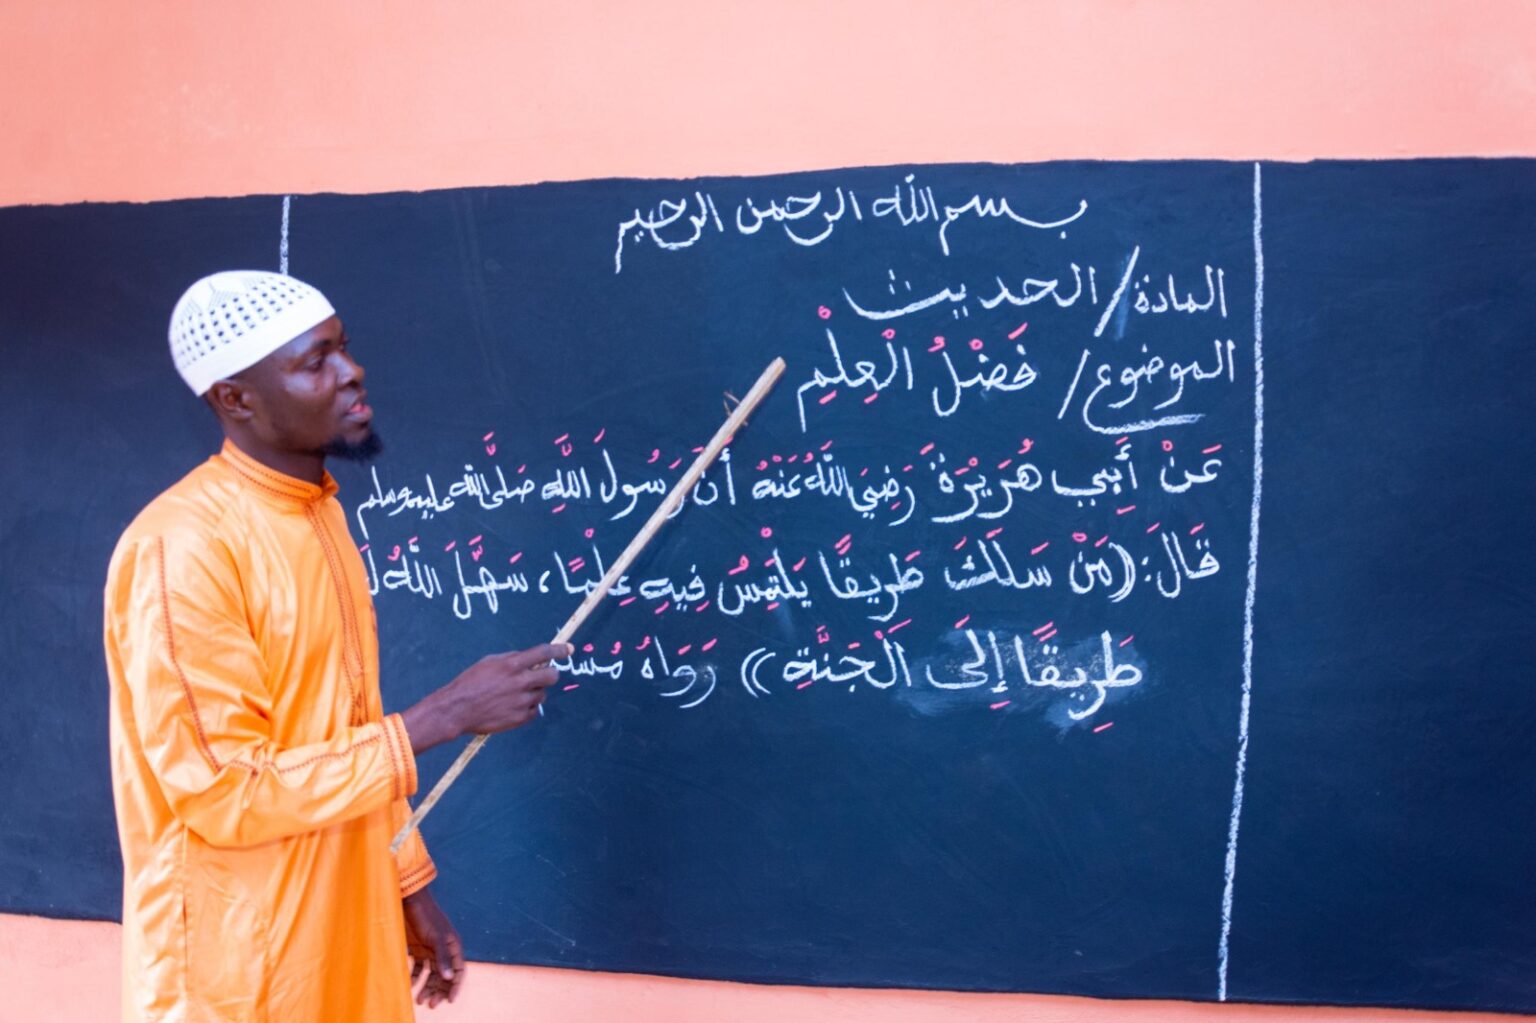 بسم الله الرحمن الرحيم
المادة / الحديث
الموضوع / فَضْلُ الْعِلِمْ
عَنْ أَبِي هُرَيْرَةَ رَضِيَ اللَّهُ عَنْهُ أَنَّ رَسُولَ اللَّهِ صَلَّى الله عليه وسلم
قَالَ: ((مَنْ سَلَكَ طَرِيقًا يَلْتَمِسُ فِيهِ عِلْمًا، سَهَّلَ اللَّهُ لَ
طَرِيقًا إِلَى الْجَنَّةِ)) رَوَاهُ مُسْلِم